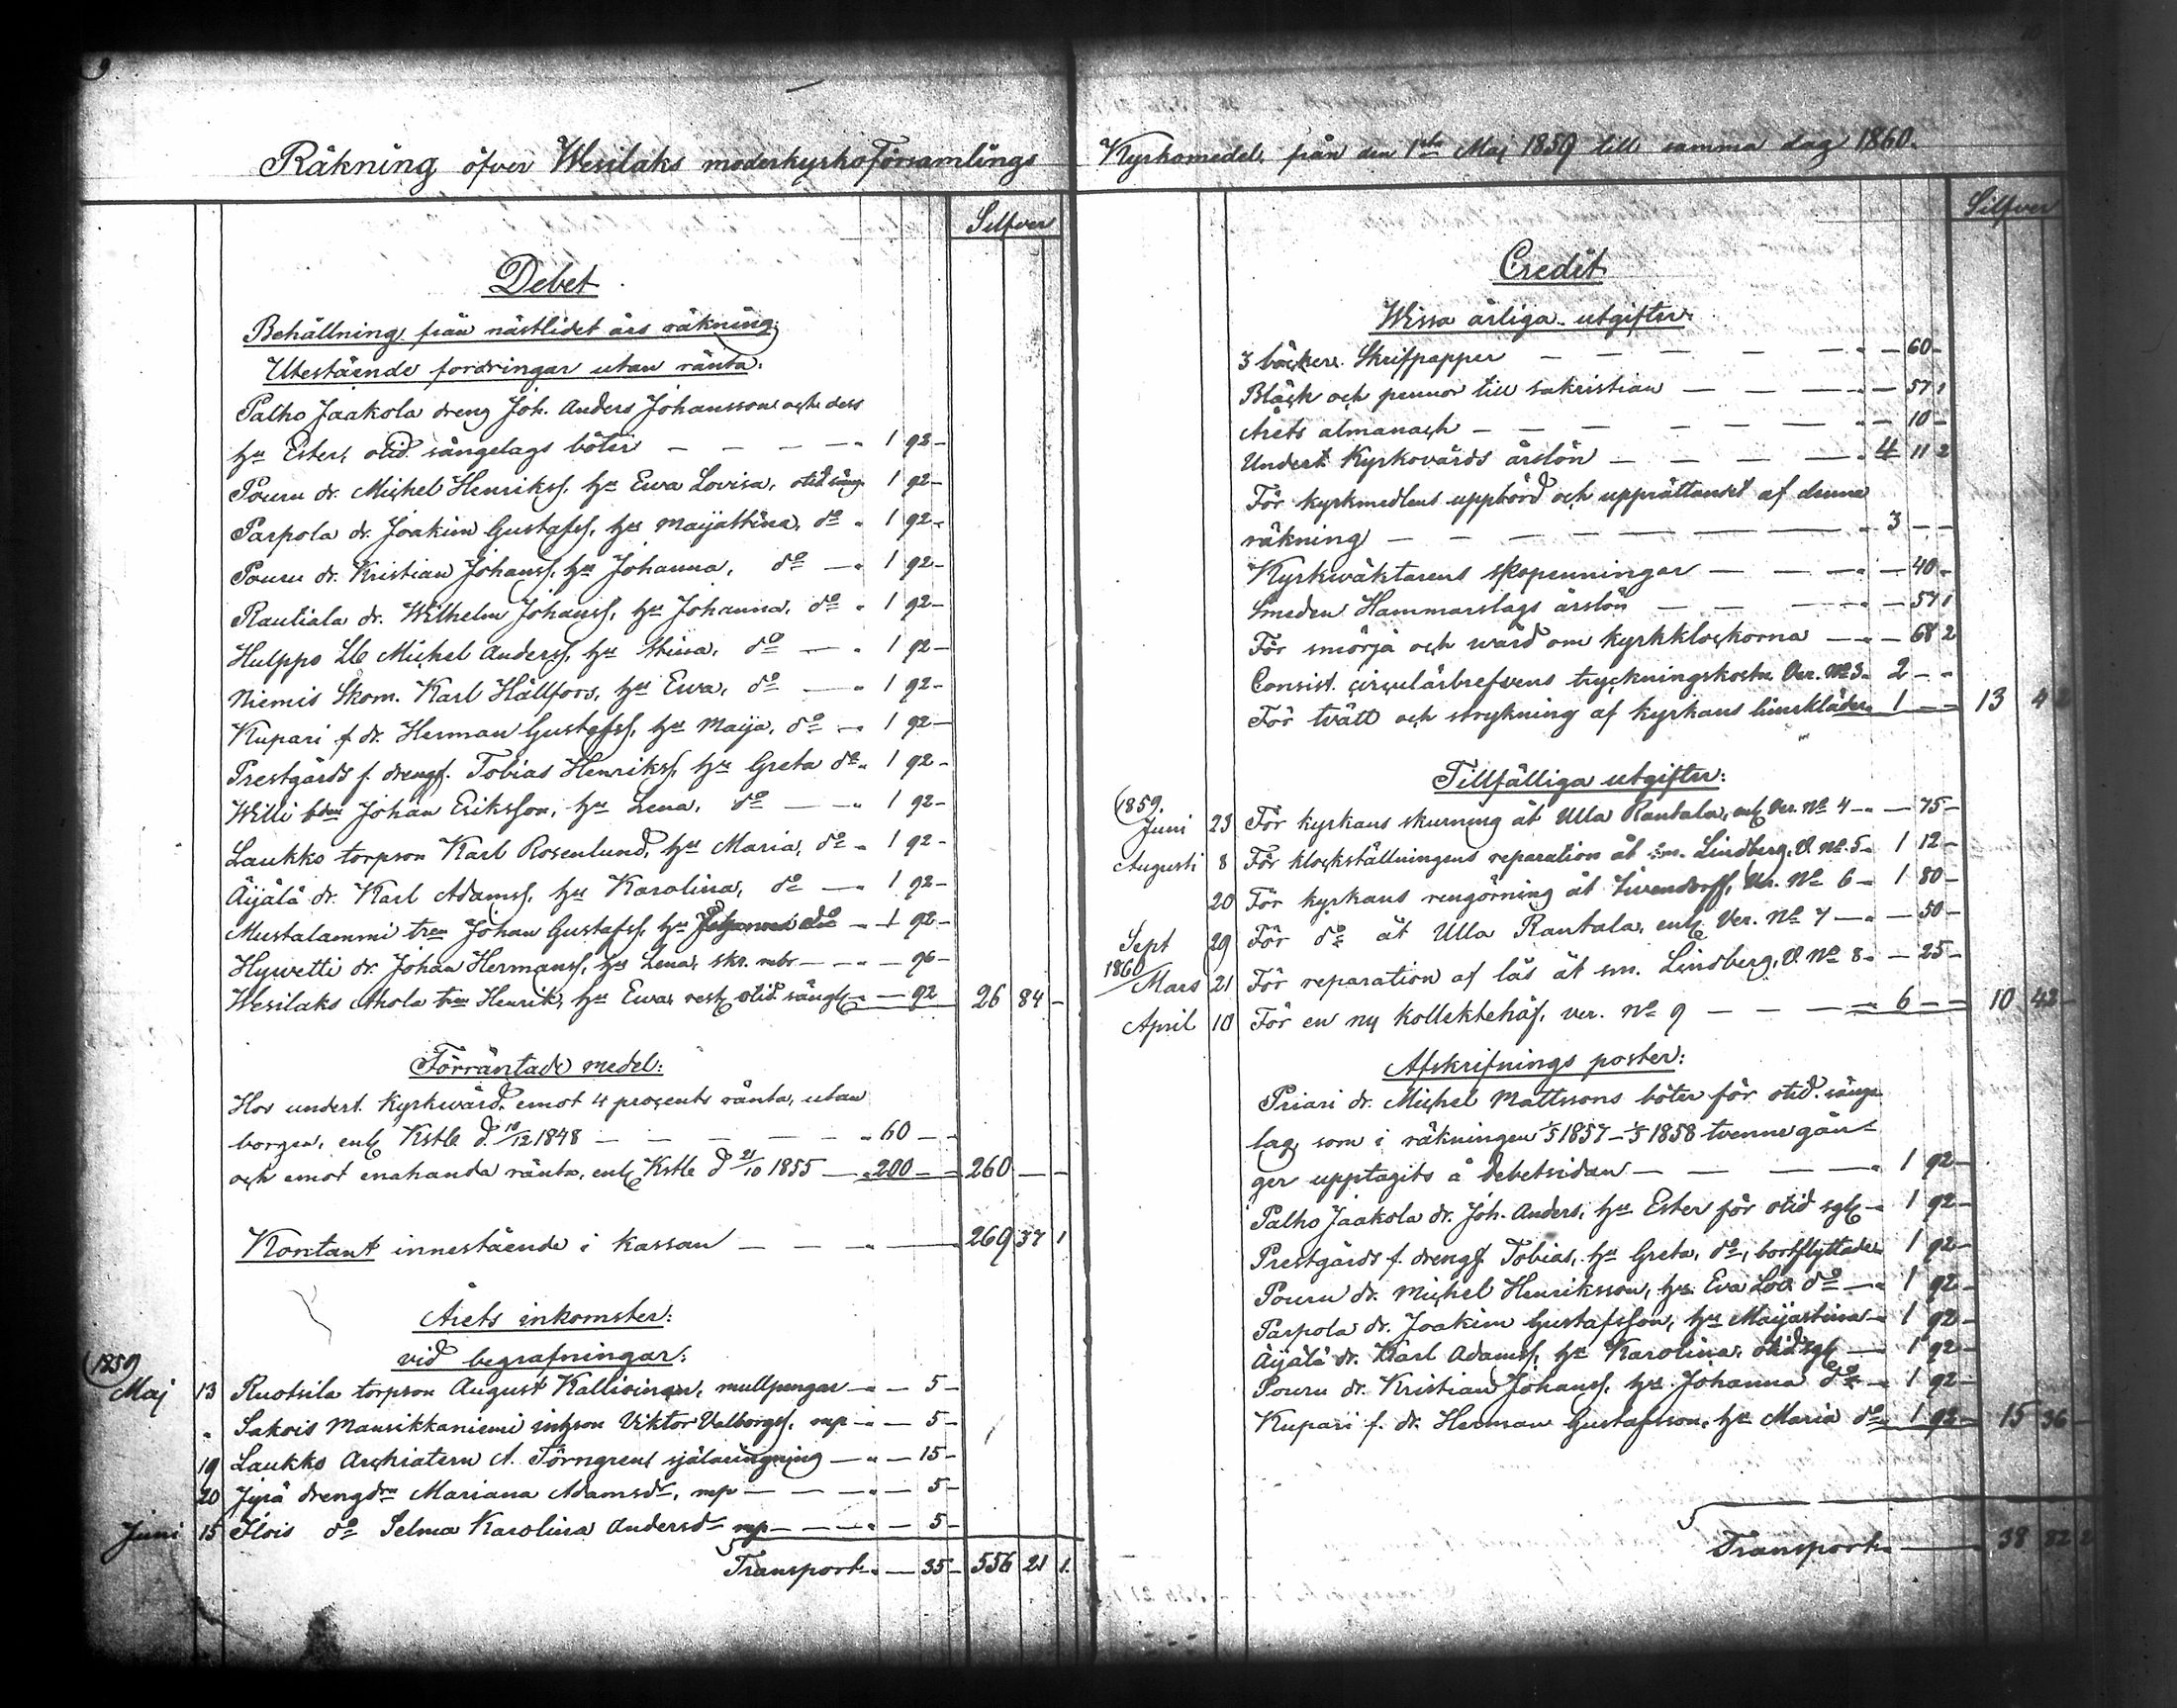 9
Räkning öfver Wesilaks moderkyrkoförsamlings
Silfver
Debet
Behållning från nästlidet års räkning:
Utestående fordringar utan ränta:
Palho Jaakola dreng Joh. Anders Johansson och dess
hu Ester, otid. sängelags böter — — — — " 1 92 –
Pouru dr. Michel Henrikss. hu Ewa Lovisa, otid säng. " 1 92 –
Parpola dr. Joakim Gustafss. hu Maijastina, do " 1 92 –
Pouru dr. Kristian Johanss. hu Johanna, do — " 1 92 –
Rautiala dr. Wilhelm Johanss. hu Johanna, do " 1 92 –
Hulppo Michel Anderss. hu Stina, do — " 1 92 –
Niemis Skom. Karl Hällfors, hu Ewa, do — " 1 92 –
Kupari f dr. Herman Gustafss. hu Maija, do — " 1 92 –
Prestgårds f. drengf. Tobias Henrikss. hu Greta do " 1 92 –
Willi bdn Johan Eriksson, hu Lena, do — — " 1 92 –
Laukko torpson Karl Rosenlund, hu Maria, do " 1 92 –
Äijälä dr. Karl Adamss. hu Karolina, do — " 1 92 –
Mustalammi tren Johan Gustafss. hu Johanna do — 1 92 –
Hywetti dr. Johan Hermanss. hu Lena, skr. mbr — — " — 96 –
Wesilaks Ahola tren Henrik, hu Ewa, rest. otid. sängl. " — 92 26 84 –
Förräntade medel:
Hos underl. Kyrkvärd. emot 4 procents ränta, utan
borgen, enl. Kstb d. 10/12 1848 — — — — — " 60 — –
och emot enahanda ränta, enl. Kstb d 21/10 1855 — " 200 — – 260 — –
Kontant innestående i kassan — — — " — 269 37 1
Årets inkomster:
vid begrafningar:
1859
Maj 13 Ruotsila torpson August Kallioinen, mullpengar — " — 5 –
" Sakois Mansikkaniemi inhson Viktor Valborgs. mp — " — 5 –
19 Laukko Archiatern A. Törngrens själaringning — " — 15 –
20 Jyrä drengdrn Mariana Adamsdr, mp — — — " — 5 –
Juni 15 Flois do Selma Karolina Andersdr mp — — — " — 5 –
Transport " — 35 – 556 21 1.
Kyrkomedel, från den 1sta Maj 1859 till samma dag 1860.
Silfver
Credit
Wissa årliga utgifter:
3 böcker Skrifpapper — — — — — " — 60 –
Bläck och pennor till sakristian — — — " — 57 1
Årets almanach — — — — — — " — 10 –
Underl. Kyrkovärds årslön — — — — " 4 11 2
För kyrkmedlens uppbörd och upprättandet af denna
räkning — — — — — — — " 3 — –
Kyrkväktarens skopenningar — — — " — 40 –
Smeden Hammarslags årslön — — — " — 57 1
För smörja och wård om kyrkklockorna — " — 68 2
Consist. circulärbrefvens tryckningskostn. Ver. No 3. " 2 — –
För tvätt och strykning af kyrkans linnekläder " 1 — – 13 4 2
Tillfälliga utgifter:
1859.
Juni 23 För kyrkans skurning åt Ulla Rantala, enl. Ver. No 4 — " — 75 –
Augusti 8 För klockställningens reparation åt sm. Lindberg, V. No 5 " 1 12 –
20 För kyrkans rengörning åt Ver. No 6 " 1 80 –
Sept 29 För do åt Ulla Rantala, enl. Ver. No 7 — " — 50 –
1860
Mars 21 För reparation af lås åt sm. Lindberg, V. No 8 " — 25 –
April 10 För en ny kollektehåf, ver. No 9 — — — — " 6 — – 10 42 –
Afskrifnings poster:
Priari dr. Michel Mattssons böter för otid. sänge
lag, som i räkningen 1/5 1857 – 1/5 1858 tvenne gån-
ger upptagits å debetsidan — — — — " 1 92 –
Palho Jaakola dr. Joh. Anders, hu Ester för otid sgl. " 1 92 –
Prestgårds f. drengf. Tobias, hu Greta, do, bortflyttade " 1 92 –
Pouru dr. Michel Henriksson, hu Eva Lov. do — " 1 92 –
Parpola dr. Joakim Gustafsson, hu Maijastina " 1 92 –
Äijälä dr. Karl Adamss. hu Karolina, otid sgl. — " 1 92 –
Pouru dr. Kristian Johanss. hu Johanna do — " 1 92 –
Kupari f. dr. Herman Gustafsson, hu Maria do " 1 92 – 15 36 –
Transport " — 38 82 2